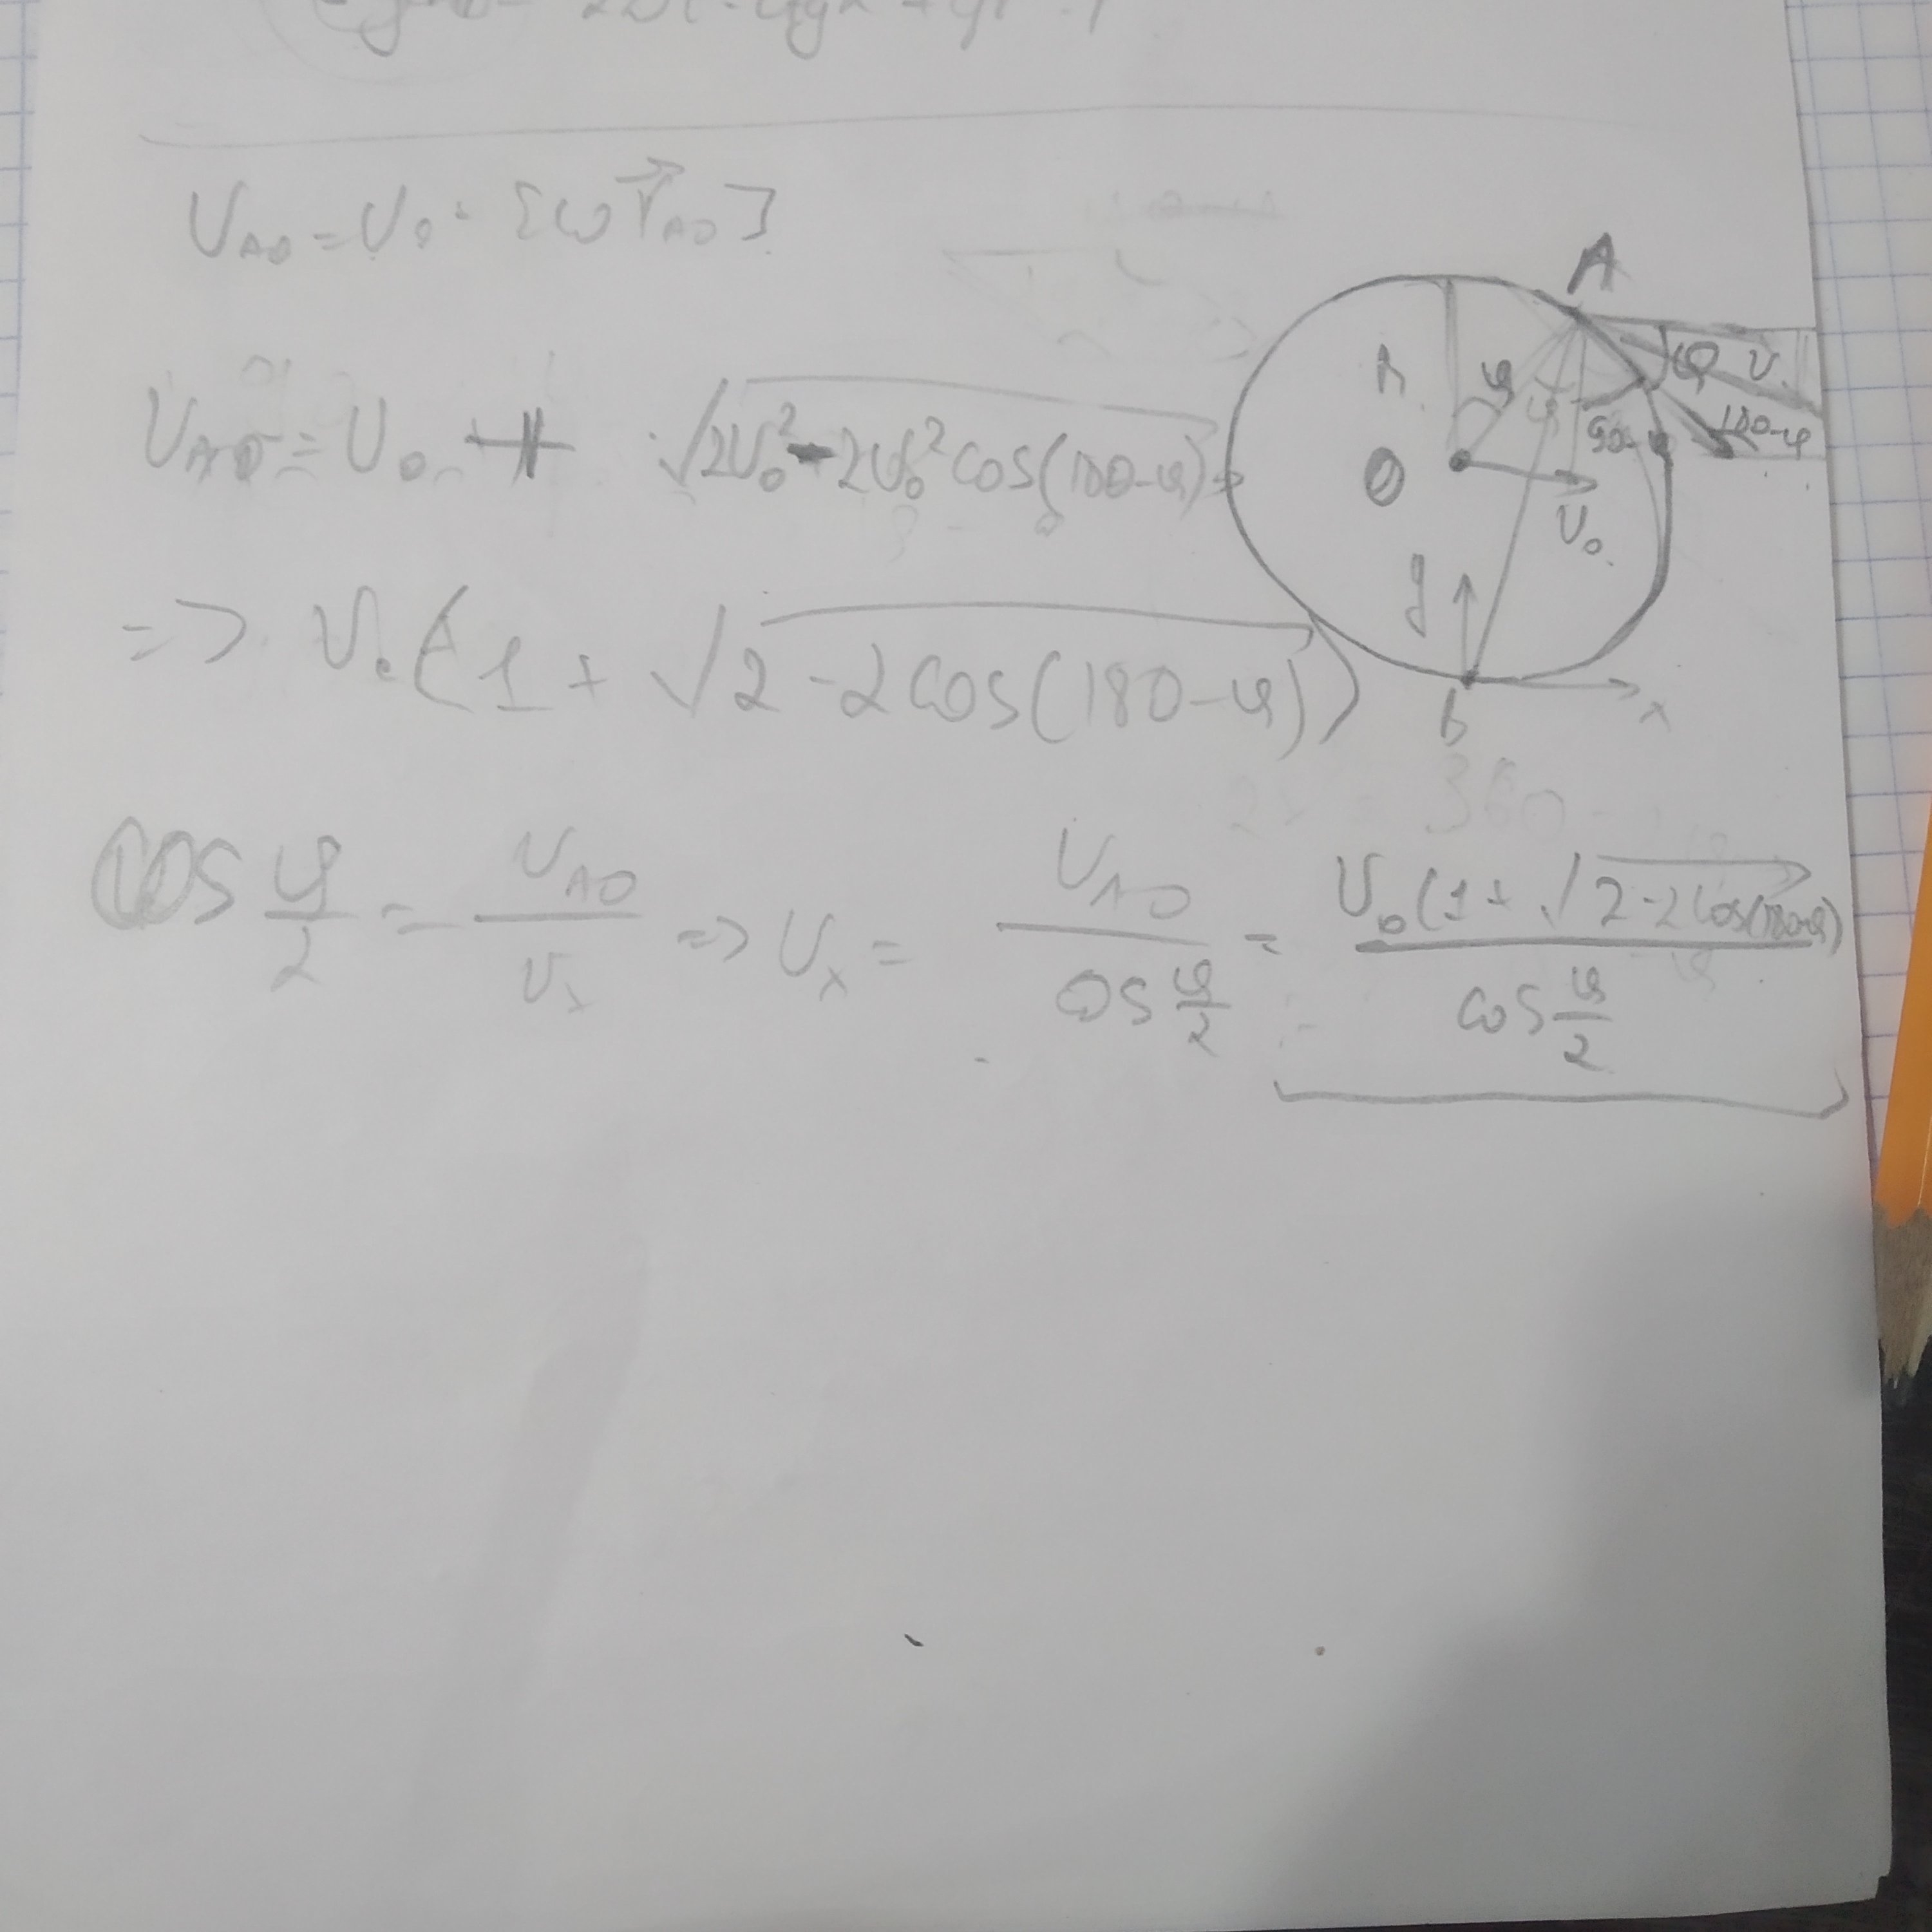 U_AO = U_0 · [ω r⃗_AO]
U_AO = U_0 + √(2U_0² - 2U_0² cos(180-φ)) =>
=> U_0 (1 + √(2 - 2cos(180-φ)))
cos φ/2 = U_AO/U_x => U_x = U_AO/(cos φ/2) = U_0(1 + √(2-2cos(180-φ)))/(cos φ/2)
A
R
φ
φ
φ
U
90-φ
180-φ
O
U_0
y
B
x